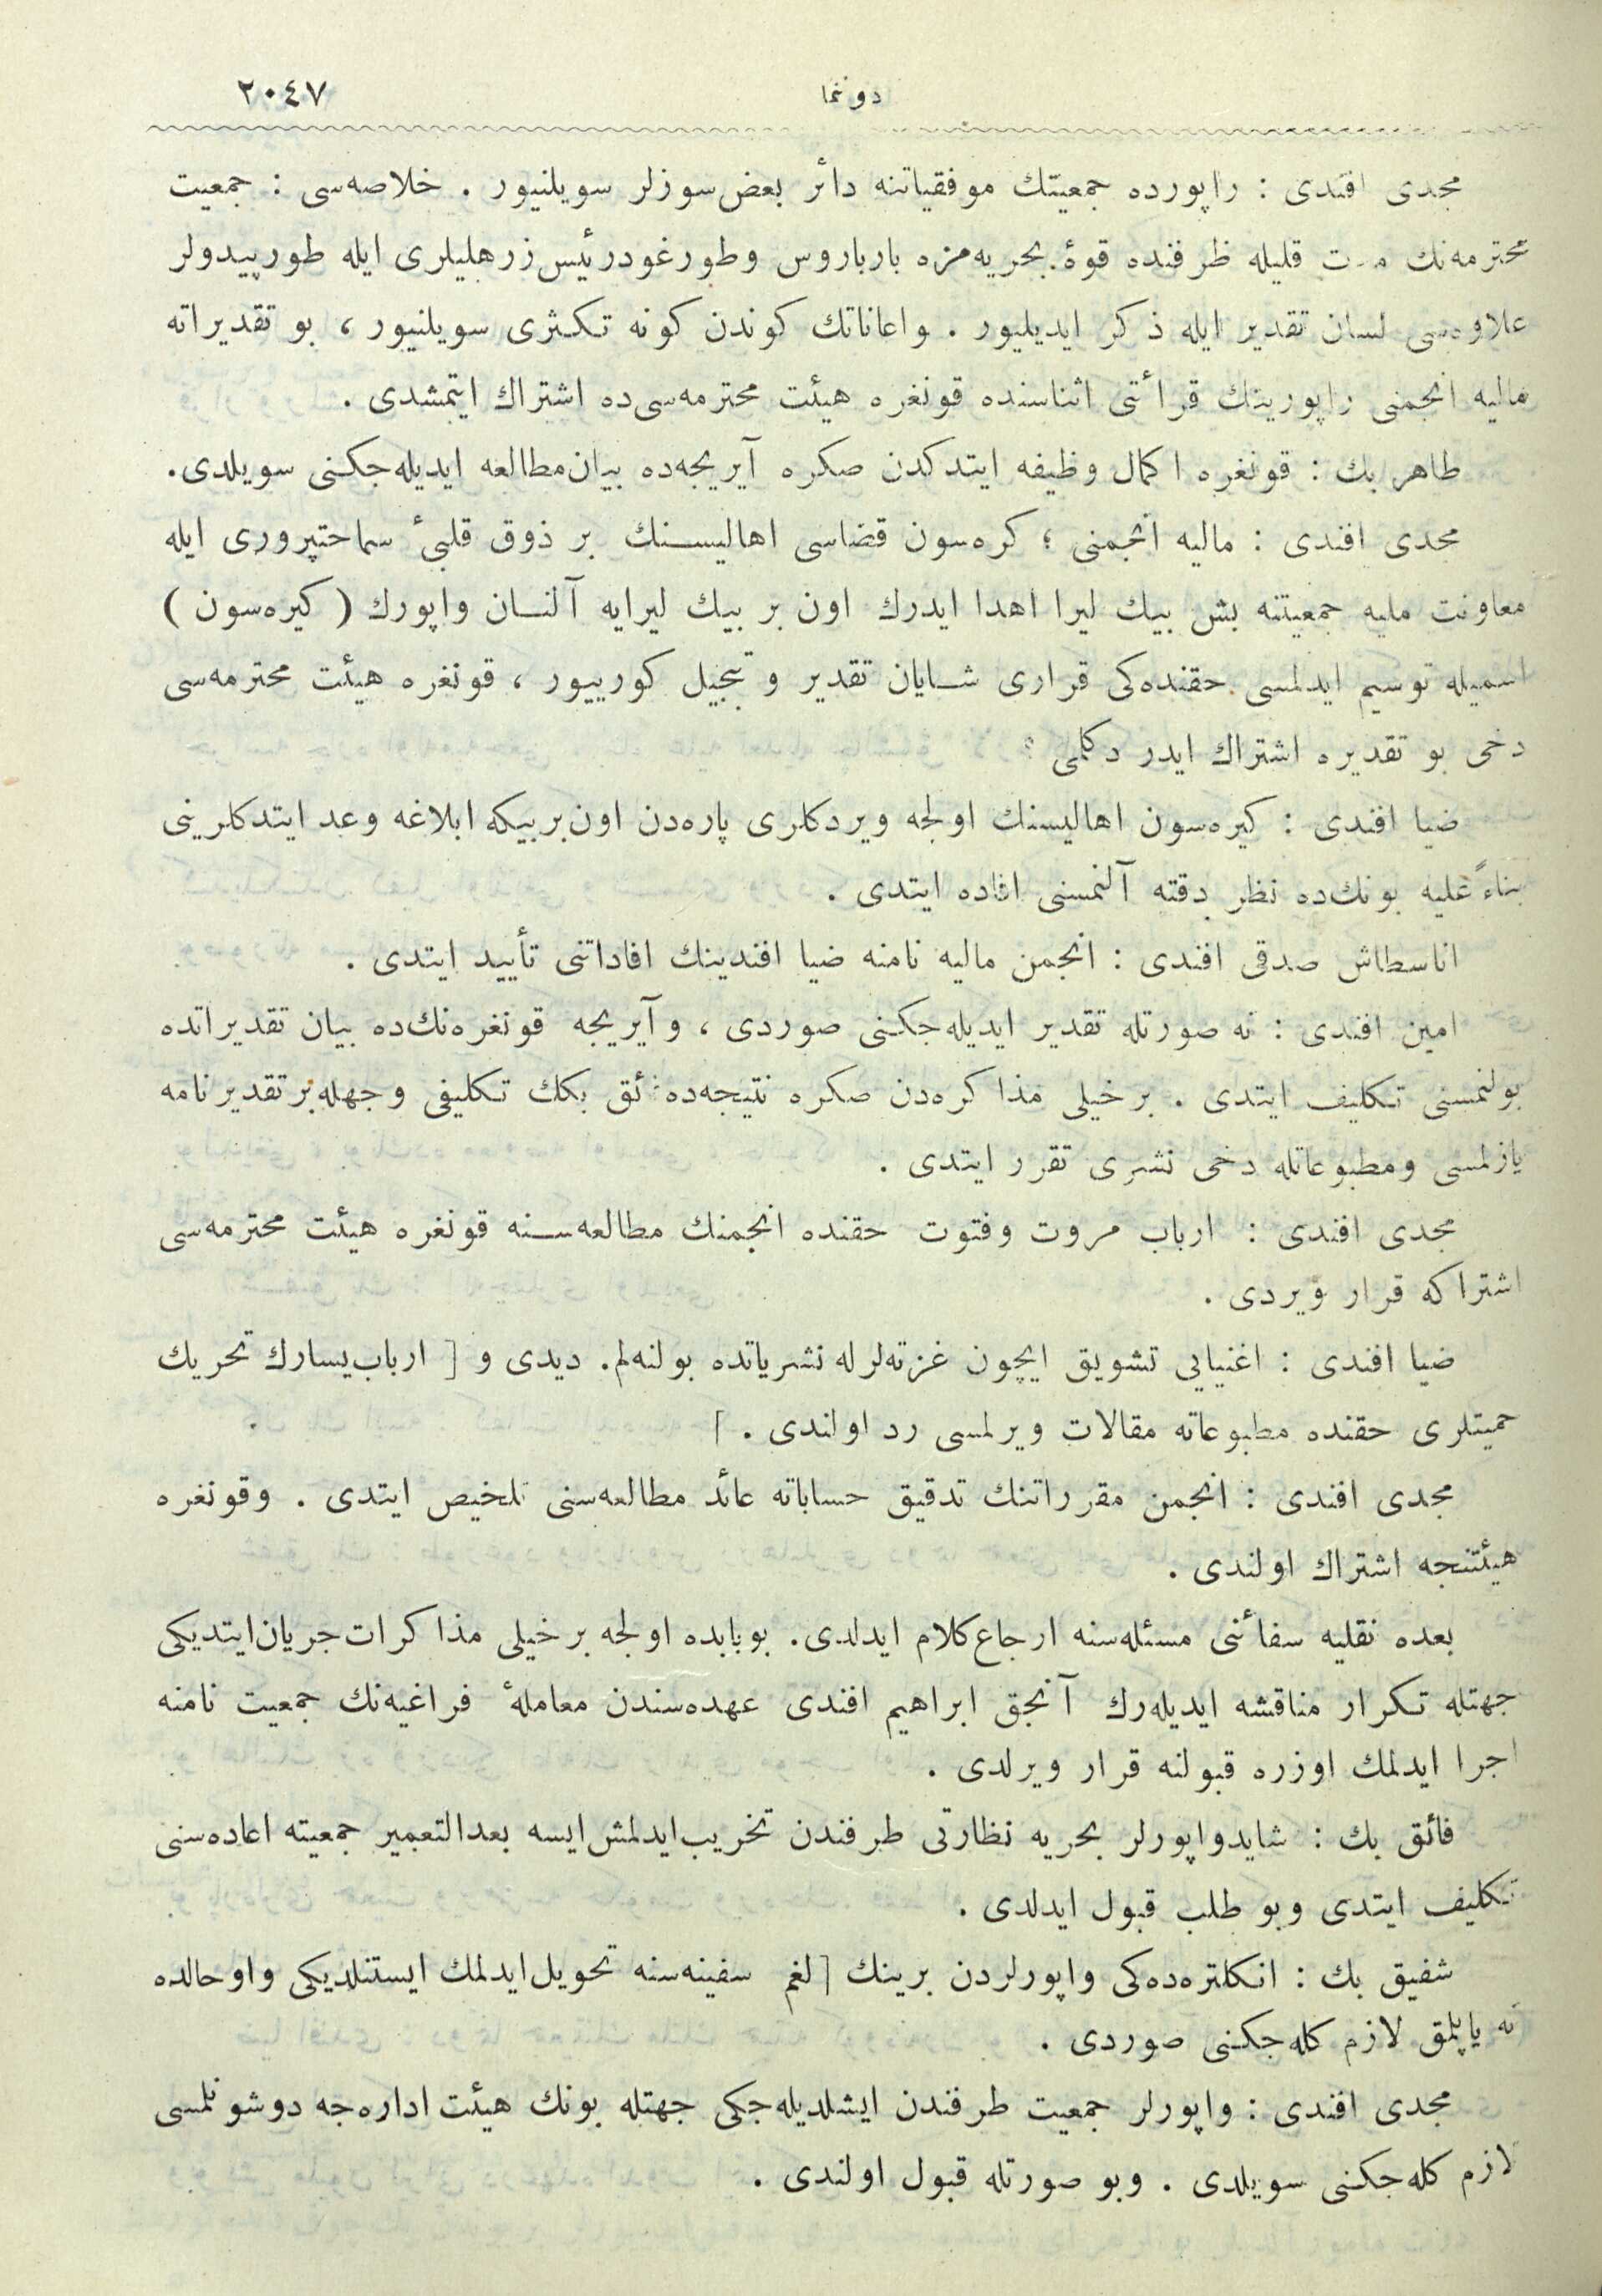 دونما ٢٠٤٧
مجدی افندی : راپورده جمعیتك موفقیاتنه دائر بعض سوزلر سویلنیور . خلاصه‌سی : جمعیت
محترمه‌نك مدت قلیله ظرفنده قوۀ بحریه‌مزه بارباروس وطورغودرئیس زرهلیلری ایله طورپیدولر
علاوه‌سی لسان تقدیر ایله ذكر ایدیلیور . واعاناتك كوندن كونه تكثری سویلنیور ، بو تقدیراته
مالیه انجمنی راپورینك قرائتی اثناسنده قونغره هیئت محترمه‌سی‌ده اشتراك ایتمشدی .
طاهر بك : قونغره اكمال وظیفه ایتدكدن صكره آیریجه‌ده بیان مطالعه ایدیله‌جكنی سویلدی .
مجدی افندی : مالیه انجمنی ؛ كره‌سون قضاسی اهالیسنك بر ذوق قلبیٔ سماحتپروری ایله
معاونت ملیه جمعیتنه بش بیك لیرا اهدا ایدرك اون بر بیك لیرایه آلنان واپورك ( كیره‌سون )
اسمیله توسیم ایدلمسی حقنده‌كی قراری شایان تقدیر و تبجیل كورییور ، قونغره هیئت محترمه‌سی
دخی بو تقدیره اشتراك ایدر دكلمی ؟
ضیا افندی : كیره‌سون اهالیسنك اولجه ویردكلری پاره‌دن اون بر بیكه ابلاغه وعد ایتدكلرینی
بناءً علیه بونك‌ده نظر دقته آلنمسنی افاده ایتدی .
اناسطاش صدقی افندی : انجمن مالیه نامنه ضیا افندینك افاداتنی تأیید ایتدی .
امین افندی : نه صورتله تقدیر ایدیله‌جكنی صوردی ، وآیریجه قونغره‌نك‌ده بیان تقدیراتده
بولنمسنی تكلیف ایتدی . برخیلی مذاكره‌دن صكره نتیجه‌ده فائق بكك تكلیفی وجهله بر تقدیرنامه
یازلمسی ومطبوعاتله دخی نشری تقرر ایتدی .
مجدی افندی : ارباب مروت وفتوت حقنده انجمنك مطالعه‌سنه قونغره هیئت محترمه‌سی
اشتراكه قرار ویردی .
ضیا افندی : اغنیایی تشویق ایچون غزته‌لرله نشریاتده بولنه‌لم . دیدی و [ ارباب یسارك تحریك
حمیتلری حقنده مطبوعاته مقالات ویرلمسی رد اولندی . ]
مجدی افندی : انجمن مقرراتنك تدقیق حساباته عائد مطالعه‌سنی تلخیص ایتدی . وقونغره
هیئتنجه اشتراك اولندی .
بعده نقلیه سفائنی مسئله‌سنه ارجاع كلام ایدلدی . بوبابده اولجه برخیلی مذاكرات جریان ایتدیكی
جهتله تكرار مناقشه ایدیله‌رك آنجق ابراهیم افندی عهده‌سندن معاملۀ فراغیه‌نك جمعیت نامنه
اجرا ایدلمك اوزره قبولنه قرار ویرلدی .
فائق بك : شایدواپورلر بحریه نظارتی طرفندن تخریب ایدلمش ایسه بعدالتعمیر جمعیته اعاده‌سنی
تكلیف ایتدی وبو طلب قبول ایدلدی .
شفیق بك : انكلتره‌ده‌كی واپورلردن برینك [ لغم سفینه‌سنه تحویل ایدلمك ایستنلدیكی واوحالده
نه یاپلمق لازم كله‌جكنی صوردی .
مجدی افندی : واپورلر جمعیت طرفندن ایشلدیله‌جكی جهتله بونك هیئت اداره‌جه دوشونلمسی
لازم كله‌جكنی سویلدی . وبو صورتله قبول اولندی .